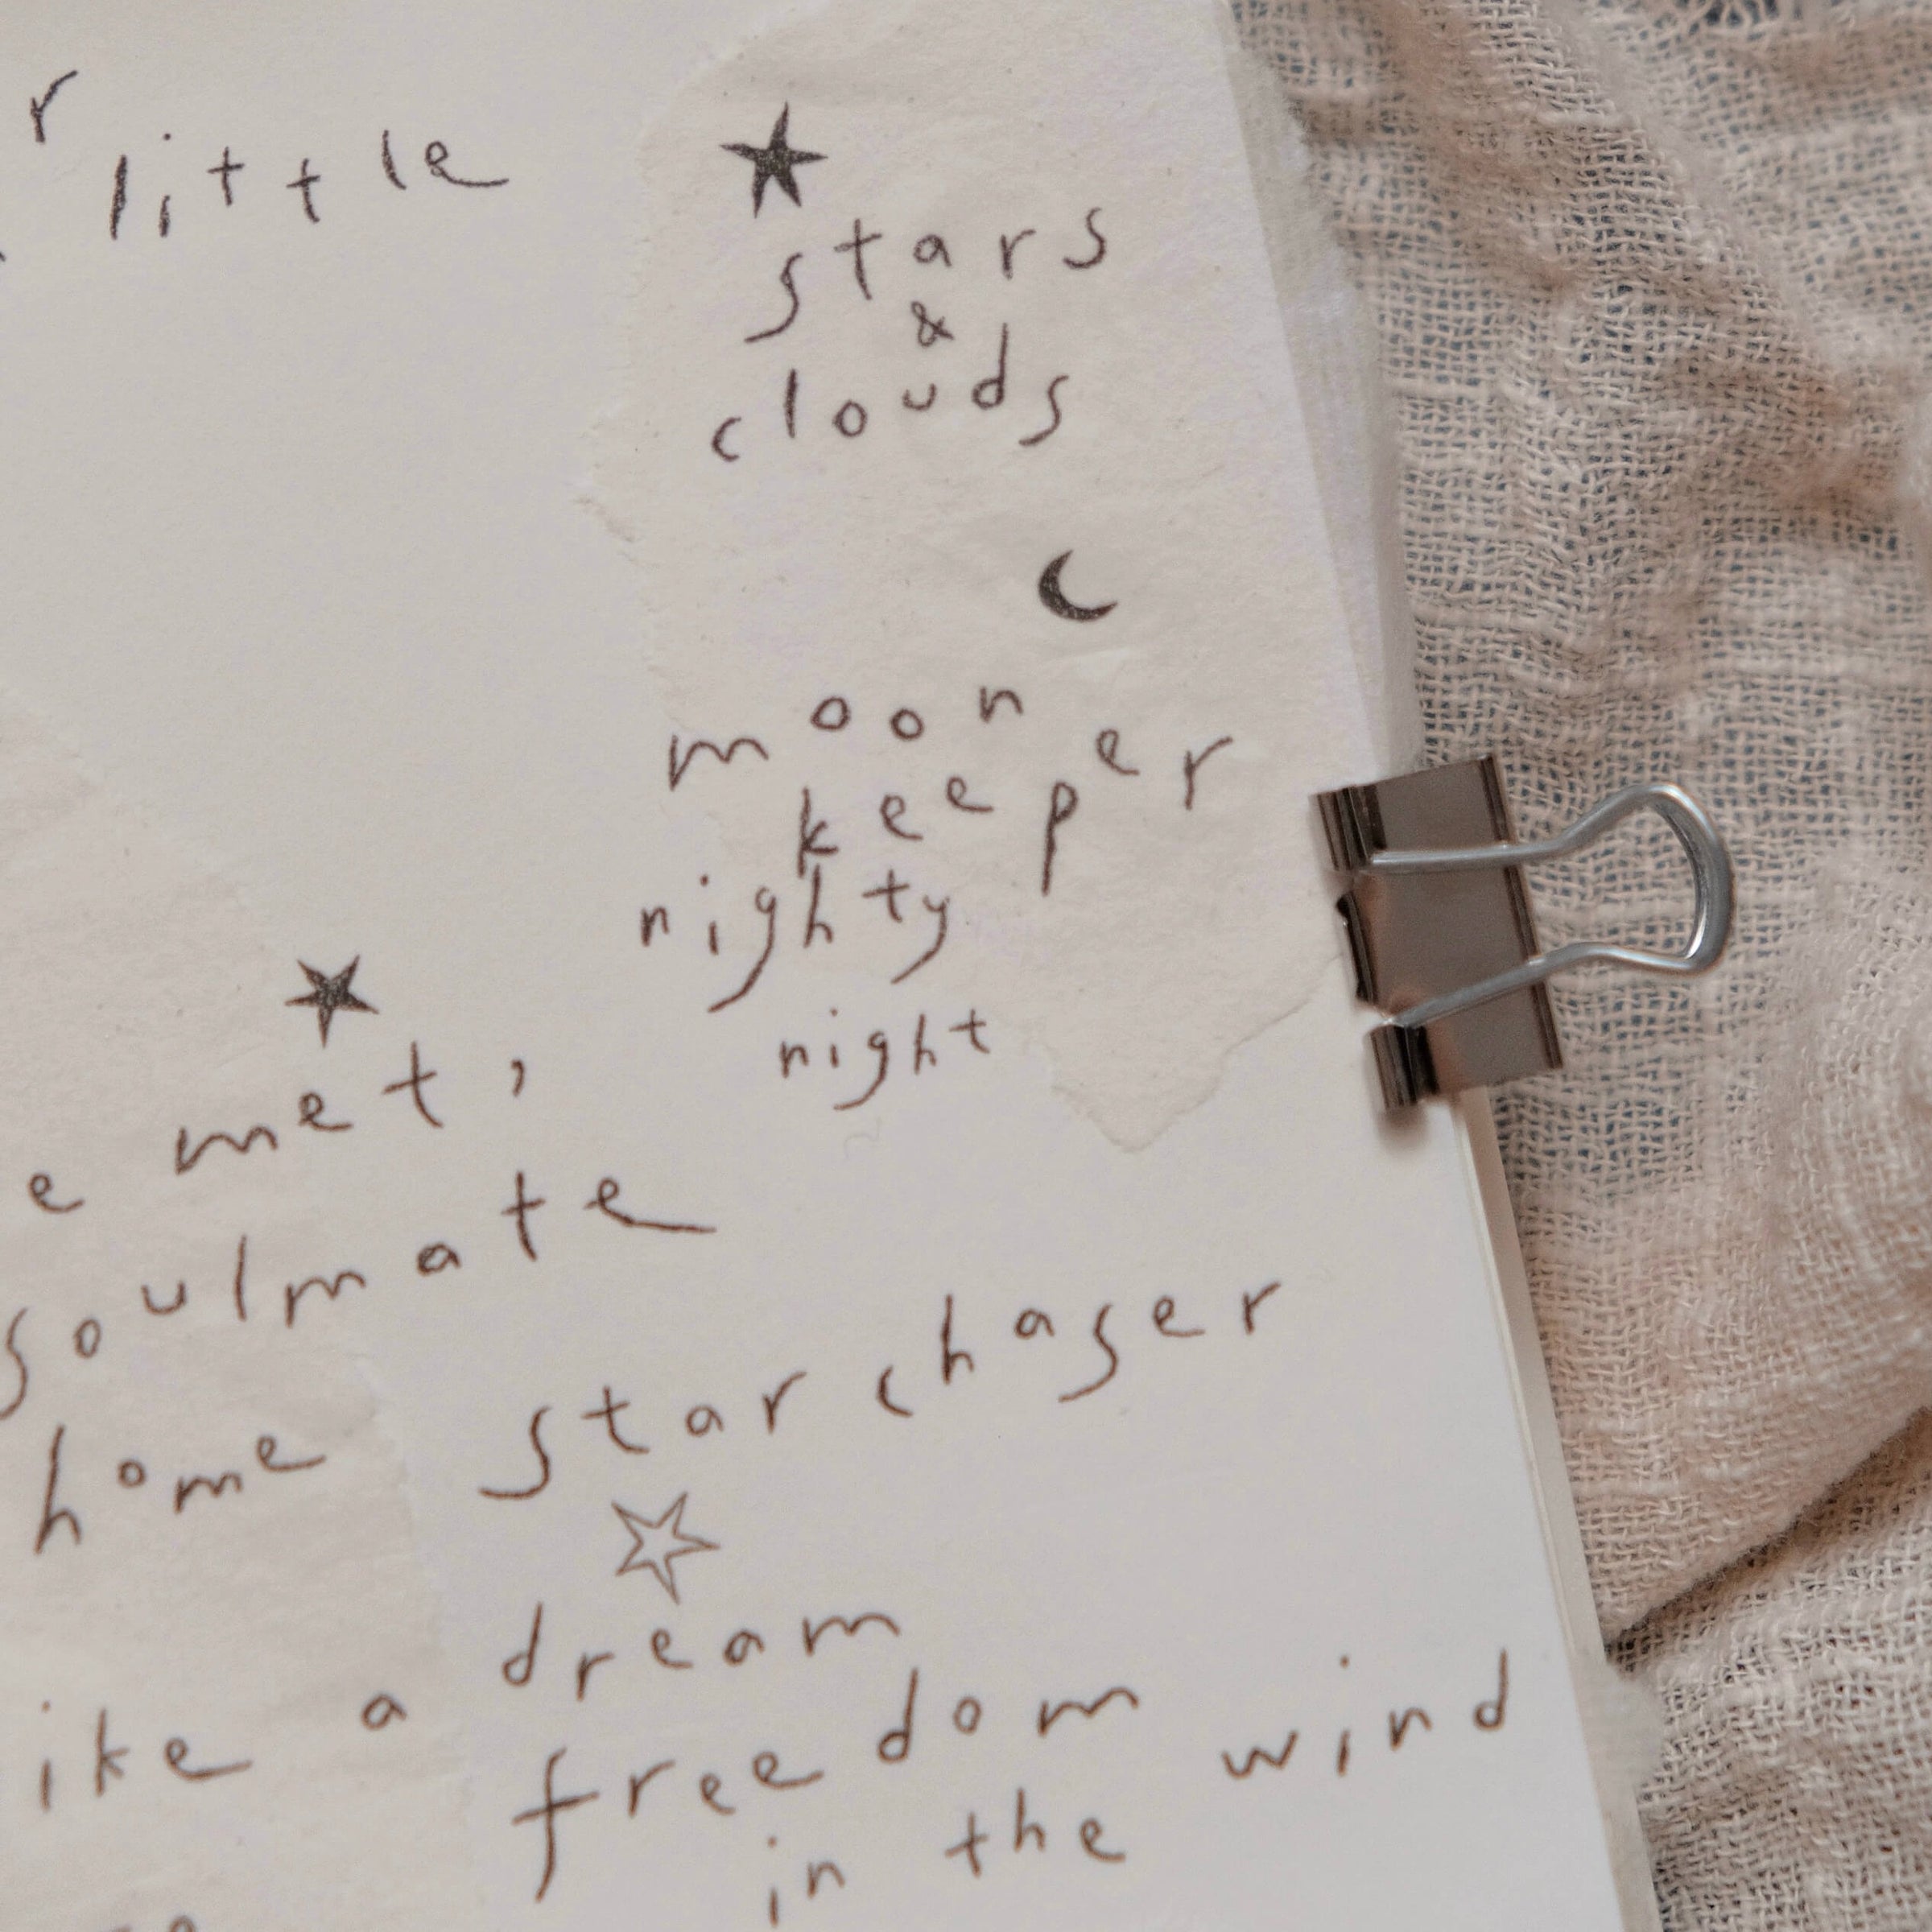 little
stars
&
clouds
moon
keeper
nighty
night
met,
soulmate
home
star chaser
a dream
freedom
in the wind